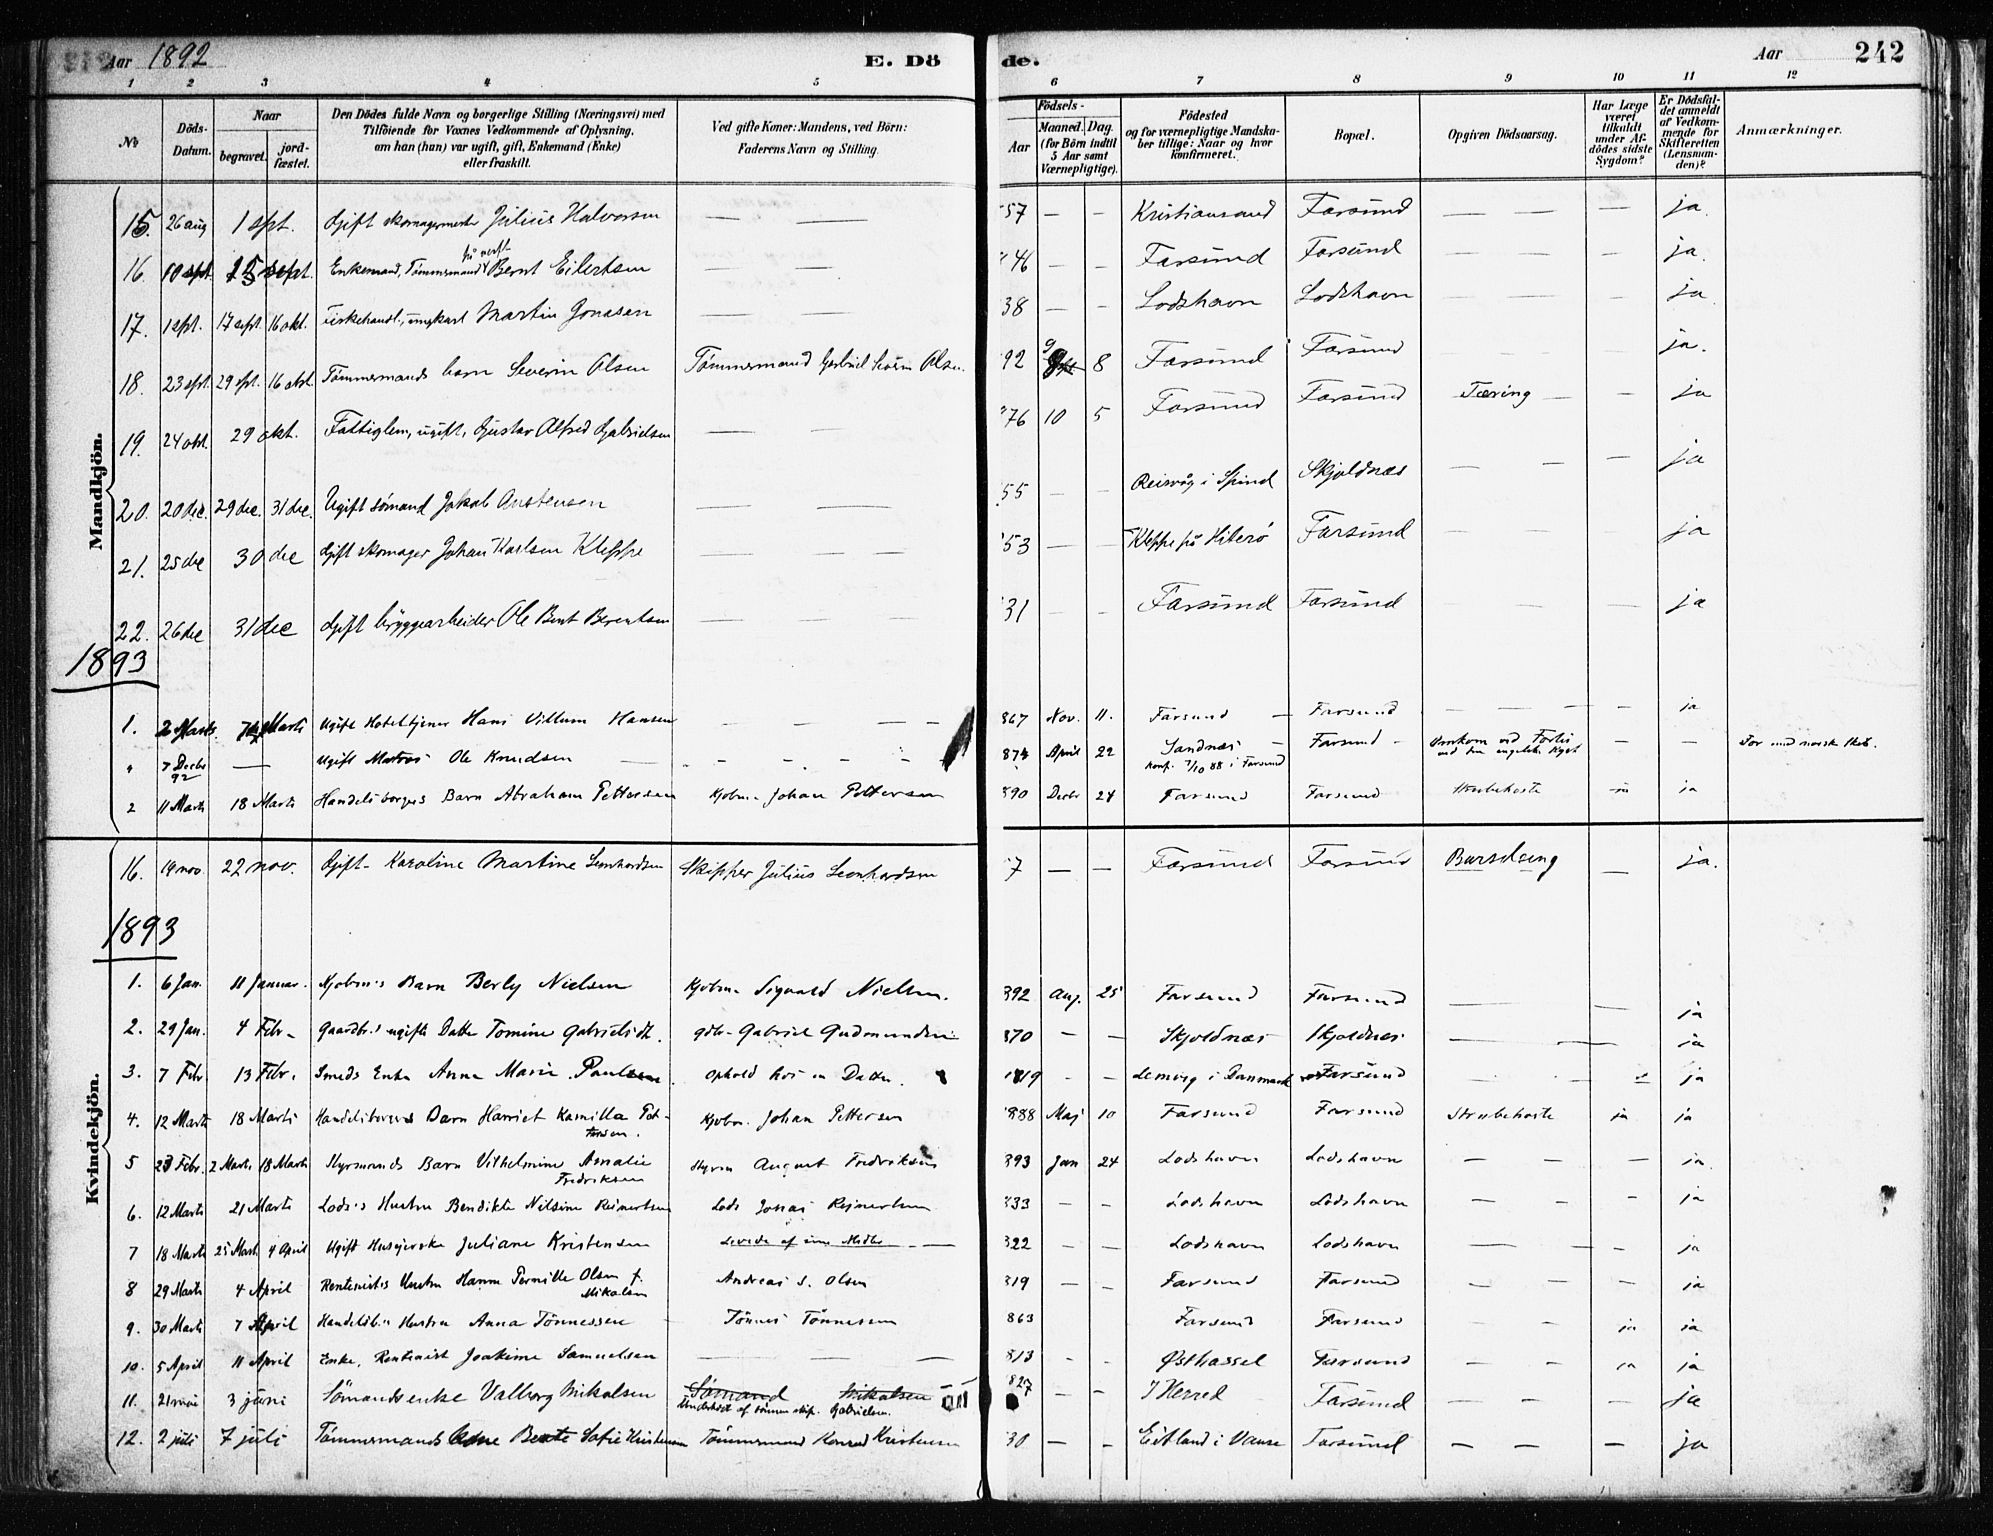 Aar 1892 E. Dö de. Aar 242
1 2 3 4 5 6 7 8 9 10 11 12
No
Döds-Datum.
Naar
begravet.
jord-fæstet.
Den Dödes fulde Navn og borgerlige Stilling (Næringsvei) med
Tilföiende for Voxnes Vedkommende af Oplysning,
om han (hun) var ugift, gift, Enkemand (Enke)
eller fraskilt.
Ved gifte Koner: Mandens, ved Börn:
Faderens Navn og Stilling.
Födsels-
Aar
Maaned. Dag.
(for Börn indtil
5 Aar samt
Værnepligtige).
Födested
og for værnepligtige Mandska-
ber tillige: Naar og hvor
konfirmeret.
Bopæl.
Opgiven Dödsaarsag.
Har Læge
været
tilkaldt
under Af-
dödes sidste
Sygdom?
Er Dödsfal-
det anmeldt
af Vedkom-
mende for
Skifteretten
(Lensman-
den)?
Anmærkninger.
Mandkjön.
15. 26 aug 1 sept. Gift skomagermester Julius Halvorsen — — 57 — — Kristiansand Farsund — — — ja.
16. 10 sept 15 sept. Enkemand, Tømmermand Bernt Eilertsen — — 46 — — Farsund Farsund — — — ja.
17. 1 spt. 17 sept. 16 okt. ungkarl Martin Jonasen — — 38 — — Lodshavn Lodshavn — — — ja
18. 23 spt. 29 spt. 16 okt. Tømmermands barn Severin Olsen Tømmermand Gabriel Olsen. 92 9 8 Farsund Farsund — — — ja.
19. 24 okt. 29 okt. Fattiglem, ugift, Gustav Alfred Gabrielsen — — 76 10 5 Farsund Farsund Tæring — — ja
20. 20 dec. 29 dec. 31 dec. Ugift sømand Jakob Austensen — — 55 — — Reisvåg i Spind Skjoldnæs — — — ja
21. 25 dec 30 dec Gift skomager Johan Karlsen Kleppe — — 53 — — Kleppe på Hiterø Farsund — — — ja
22. 26 dec 31 dec Gift bryggearbeider Ole Bent Berentsen — — 31 — — Farsund Farsund — — — ja
1893
1. 2 Marts. 7 Marts Ugift Hoteltjener Hans Villum Hansen — — 867 Nov. 11. Farsund Farsund — — — ja
" 7 Decbr 92 — Ugift Matros Ole Knudsen — — 874 April 22 Sandnes Farsund Omkom ved Forlis — —
konf. 7/10 88 i Farsund ved den engelske Kyst
2 11 Marts 18 Marts Handelsborgers Barn Abraham Pettersen Kjøbm. Johan Pettersen 890 Decbr 24 Farsund Farsund Strubehoste ja ja
Kvindekjön.
16. 19 nov. 22 nov. Gift Karoline Martine Leonhardsen Skipper Julius Leonhardsen 7 — — Farsund Farsund Barselseng — ja.
1893
1. 6 Jan. 11 Januar. Kjøbm's Barn Berly Nielsen Kjøbm. Sigvald Nielsen. 892 Aug. 25 Farsund Farsund — — ja
2. 29 Jan. 4 Febr. Gaardbr.s ugifte Datter Tomine Gabrielsdt. Gdbr. Gabriel Gudmundsen 870 — — Skjoldnæs Skjoldnæs — — ja
3. 7 Febr. 13 Febr. Smeds Enke Anna Marie Paulsen. Ophold hos en Datter. 1819 — — Lemvig i Danmark Farsund — — ja
4. 12 Marts 18 Marts Handelsborgers Barn Harriet Kamilla Pet-
tersen. Kjøbm. Johan Pettersen 888 Maj 10 Farsund Farsund Strubehoste ja ja
5 23 Febr. 2 Marts 18 Marts Styrmands Barn Vilhelmine Amalie
Fredriksen Styrm August Fredriksen 893 Jan 24 Lodshavn Lodshavn — — — ja
6. 12 Marts 21 Marts Lods's Hustru Bendikte Nilsine Reinertsen Lods Jonas Reinertsen 833 — — Lodshavn Lodshavn — — — ja
7 18 Marts 25 Marts 4 April Ugift Husejerske Juliane Kristensen Levede af sine Midler — 822 — — Lodshavn Lodshavn — — — ja
8 29 Marts 4 April Renteniers Hustru Hanne Pernille Olsen f.
Mikalsen Andreas S. Olsen 819 — — Farsund Farsund — — — ja
9. 30 Marts 7 April Handelsb.s Hustru Anna Tønnessen Tønnes Tønnesen 863 Farsund Farsund — — ja ja
10. 5 April 11 April Enke, Rentenist Joakime Samuelsen — — 813 — — Østhassel Farsund — — ja ja
11. 21 mai 3 juni Sømandsenke Valborg Mikalsen Sømand Mikalsen 827 — — I Herred Farsund — — — ja
12. 2 juli 7 juli Tømmermands Bente Sofie Kristensen Tømmermand Konrad Kristensen 30 — — Eitland i Vanse Farsund — — — ja